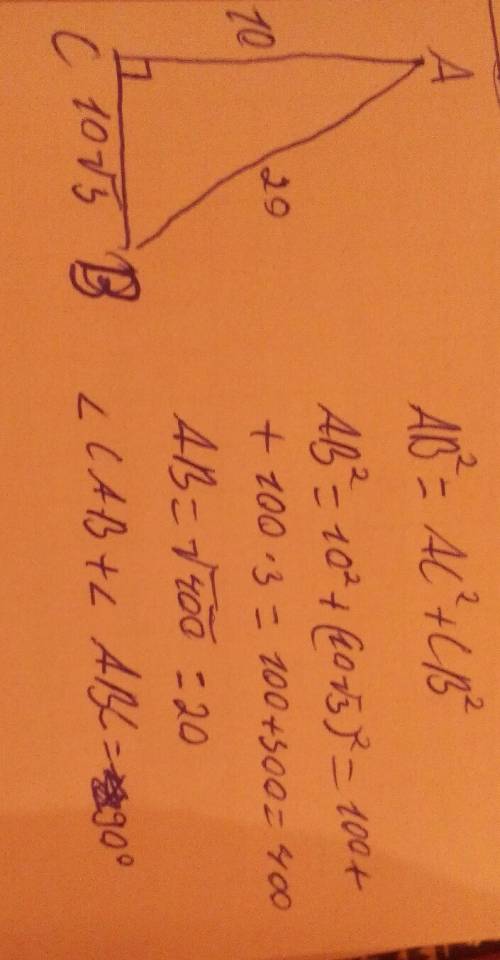 A
10
C
29
10√3
B
AB² = AC² + CB²
AB² = 10² + (10√3)² = 100 +
+ 100 · 3 = 100 + 300 = 400
AB = √400 = 20
∠CAB + ∠ABC = 90°